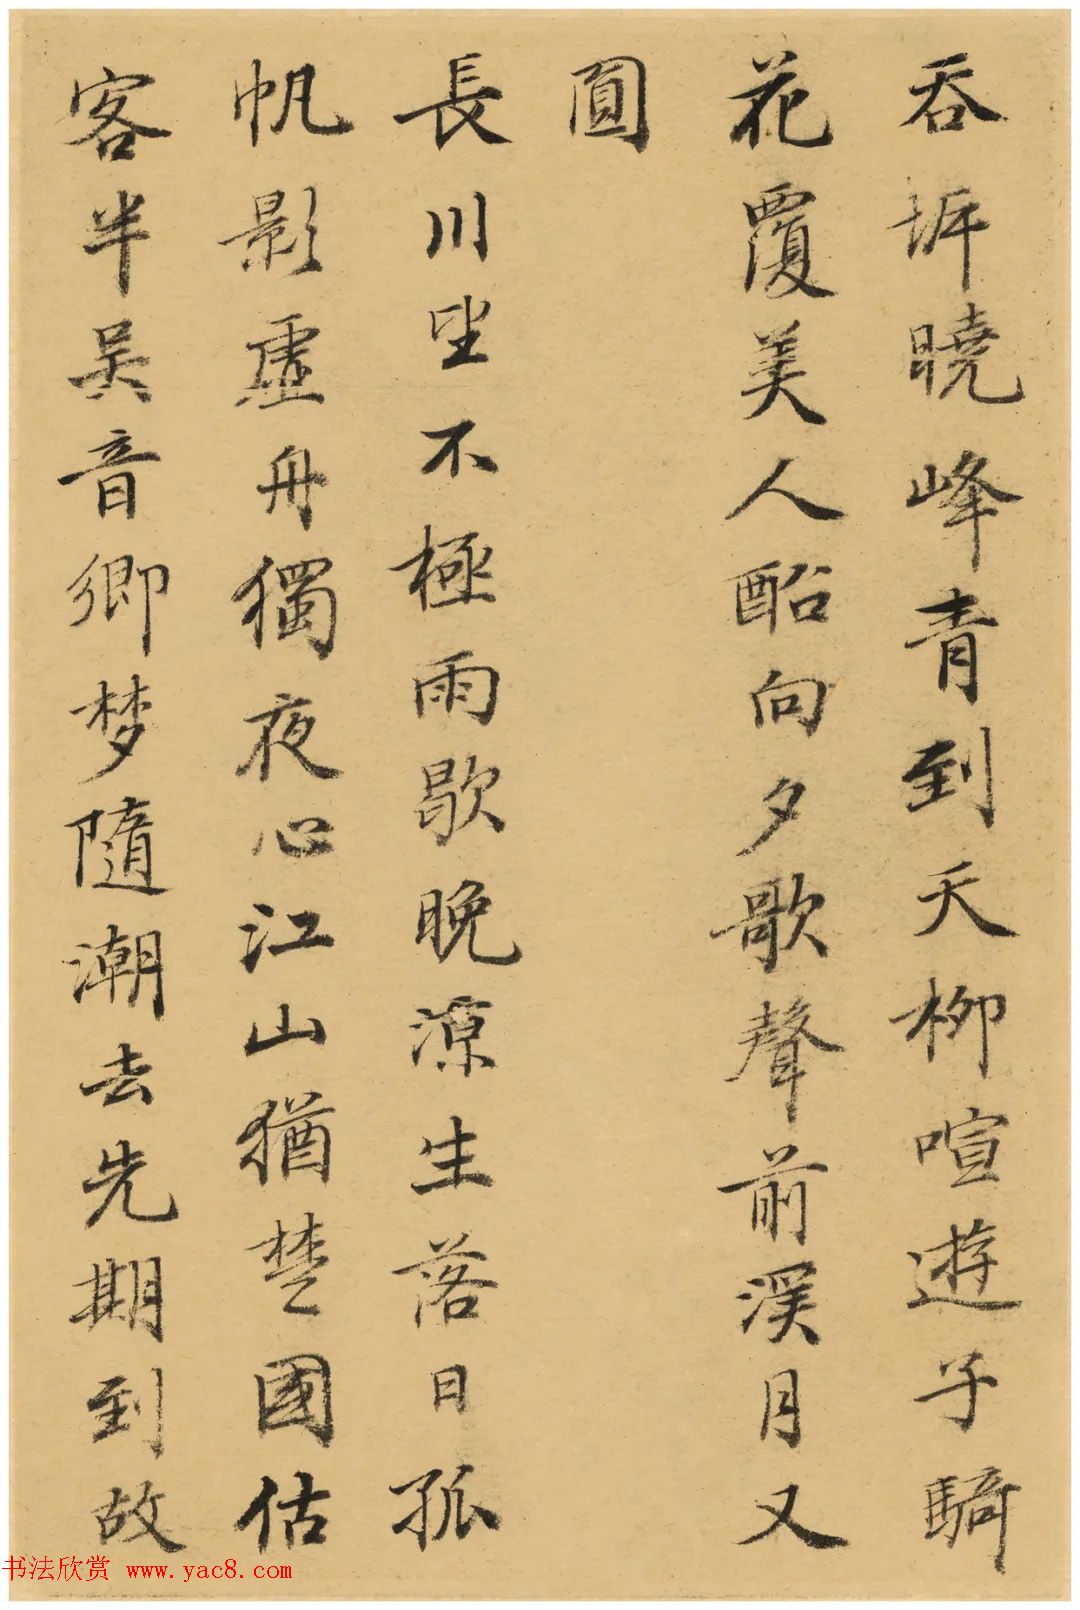 吞坼曉峰青到天柳喧遊子騎
花覆美人酩向夕歌聲前溪月又
圓
長川坐不極雨歇晚涼生落日孤
帆影虛舟獨夜心江山猶楚國估
客半吳音鄉梦隨潮去先期到故
书法欣赏 www.yac8.com